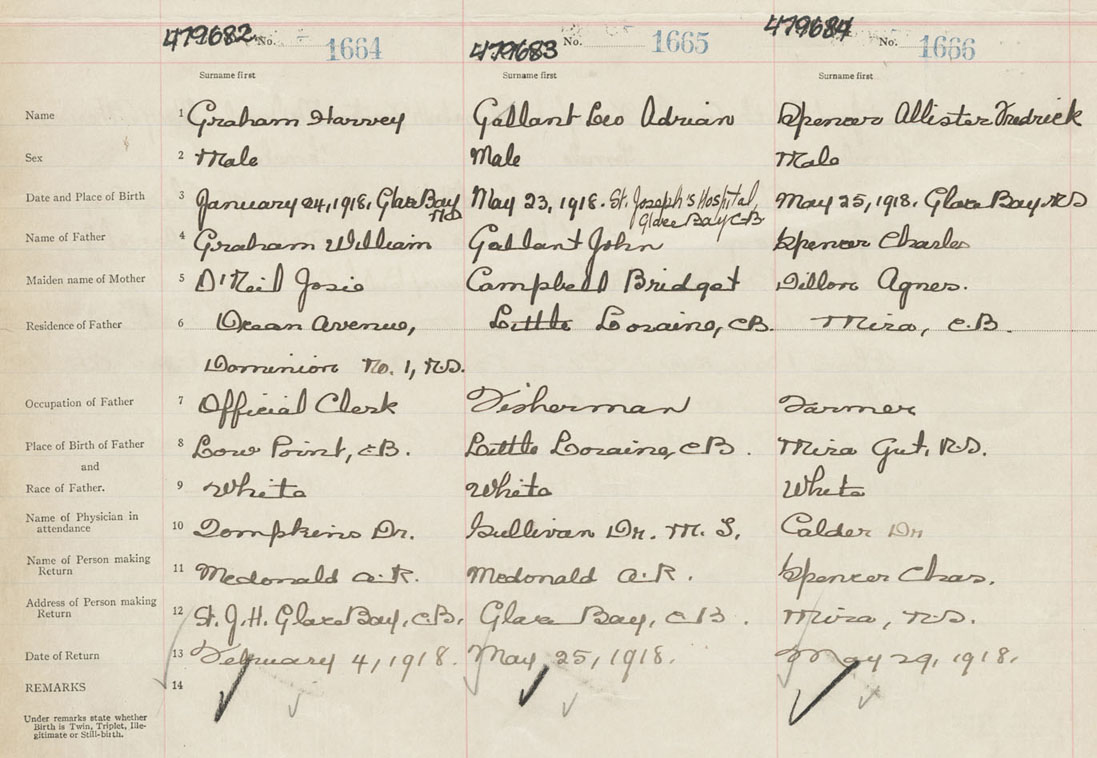 479682 No. 1664 479683 No. 1665 479684 No. 1666
Surname first Surname first Surname first
Name 1 Graham Harvey Gallant Leo Adrian Spencer Allister Fredrick
Sex 2 Male Male Male
Date and Place of Birth 3 January 24, 1918, Glace Bay N.S. May 23, 1918. St. Joseph's Hospital, Glace Bay C.B. May 25, 1918. Glace Bay N.S
Name of Father 4 Graham William Gallant John Spencer Charles
Maiden name of Mother 5 O'Neil Josie Campbell Bridget Dillon Agnes.
Residence of Father 6 Ocean Avenue, Little Loraine, CB. Mira, C.B.
Dominion No. 1, N.S.
Occupation of Father 7 Official Clerk Fisherman Farmer
Place of Birth of Father 8 Low Point, CB. Little Loraine, CB. Mira Gut, N.S.
and
Race of Father. 9 White White White
Name of Physician in
attendance 10 Tompkins Dr. Sullivan Dr. M. S. Calder Dr
Name of Person making
Return 11 Mcdonald A.R. Mcdonald A.R. Spencer Chas.
Address of Person making
Return 12 St. J.H. Glace Bay, C.B. Glace Bay, C.B. Mira, N.S.
Date of Return 13 February 4, 1918. May 25, 1918. May 29, 1918.
REMARKS 14
Under remarks state whether
Birth is Twin, Triplet, Ille-
gitimate or Still-birth.